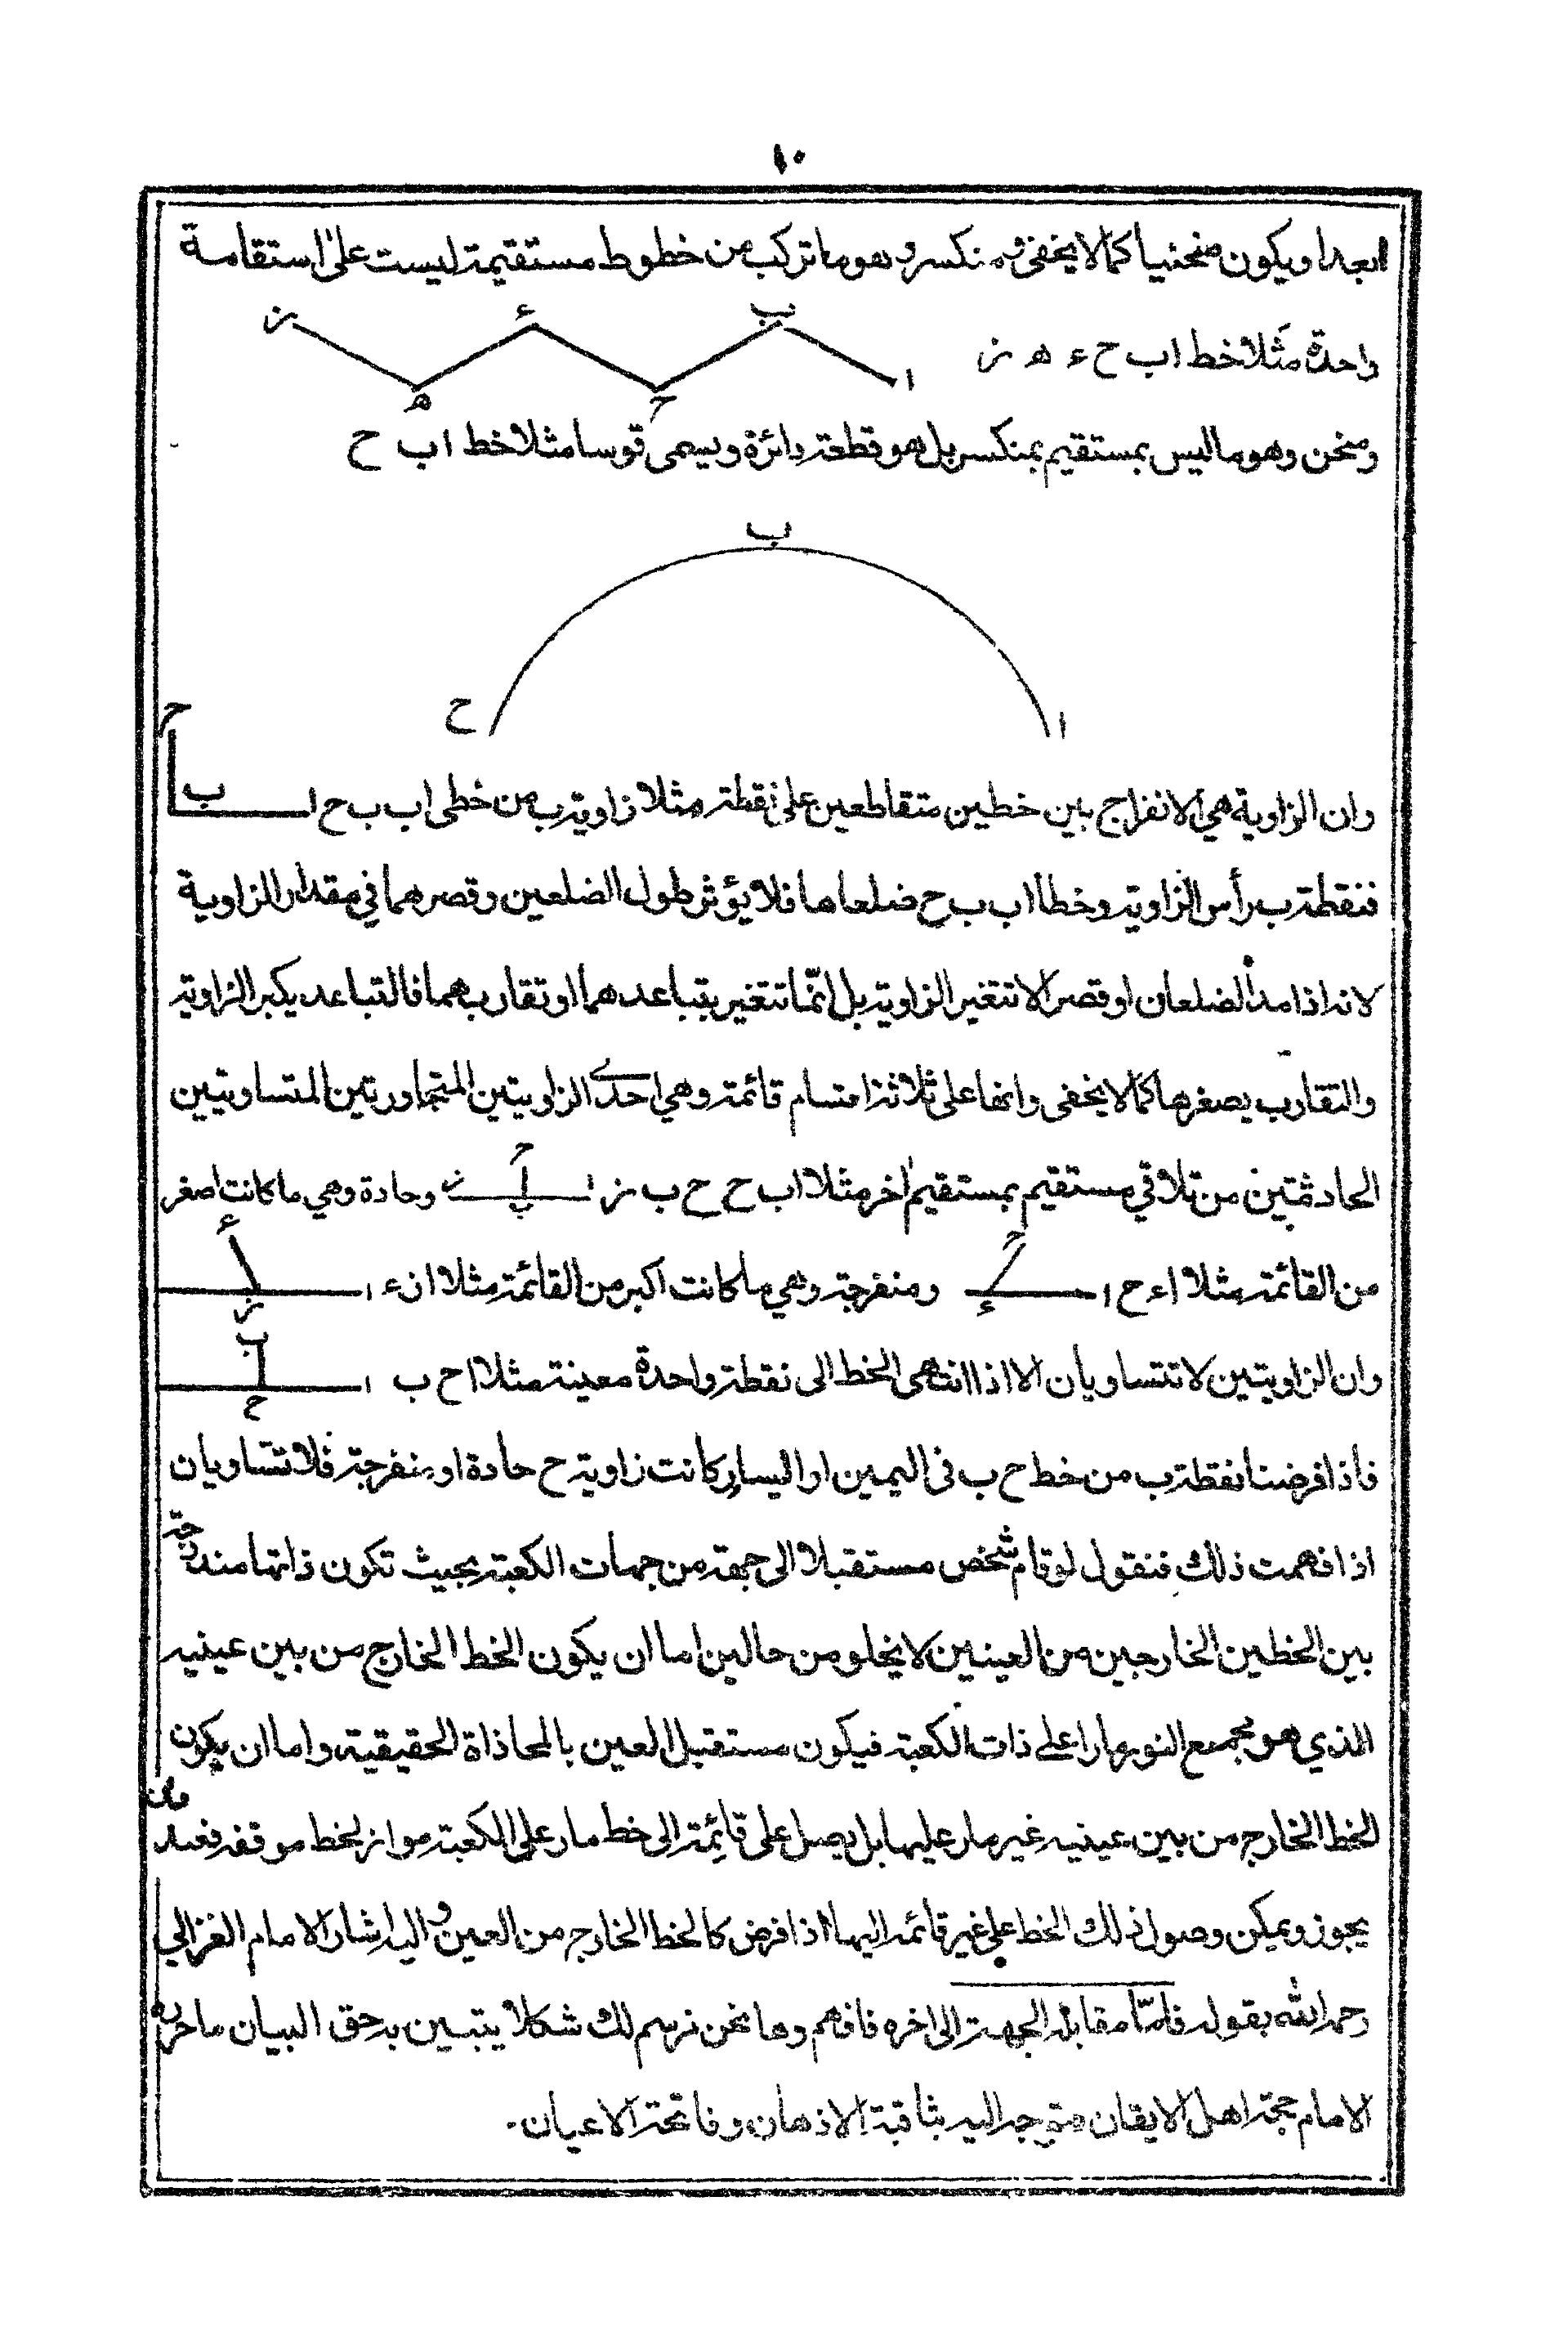 ١٠
ابعد او يكون منحنيا كما لا يخفى و منكسر و هو ما تركب من خطوط مستقيمة ليست على استقامة
واحدة مثلا خط ا ب ح ء ه ز
ا ب ح ء ه ز
ومنحن وهو ما ليس بمستقيم بمنكسر بل هو قطعة دائرة ويسمى قوسا مثلا خط ا ب ح
ب
ا ح
وان الزاوية هي الانفراج بين خطين متقاطعين على نقطة مثلا زاوية ب من خطى ا ب ب ح ا ب ح
فنقطة ب رأس الزاوية وخطا ا ب ب ح ضلعاها فلا يؤثر طول الضلعين وقصرهما في مقدار الزاوية
لانه اذا مد الضلعان او قصرا لا تتغير الزاوية بل انما تتغير بتباعدهما او تقاربهما فالتباعد يكبر الزاوية
والتقارب يصغرها كما لا يخفى وانها على ثلاثة اقسام قائمة وهي احدى الزاويتين المتجاورتين المتساويتين
الحادثتين من تلاقي مستقيم بمستقيم اخر مثلا ا ب ح ح ب ز ا ح ب ز وحادة وهي ما كانت اصغر
من القائمة مثلا ا ء ح ا ح ء ومنفرجة وهي ما كانت اكبر من القائمة مثلا ا ز ء ا ء ز
وان الزاويتين لا تتساويان الا اذا انتهى الخط الى نقطة واحدة معينة مثلا ا ح ب ا ب ح
فاذا فرضنا نقطة ب من خط ح ب فى اليمين او اليسار كانت زاوية ح حادة او منفرجة فلا تتساويان
اذا فهمت ذلك فنقول لو قام شخص مستقبلا الى جهة من جهات الكعبة بحيث تكون ذاتها مندرجة
بين الخطين الخارجين من العينين لا يخلو من حالين اما ان يكون الخط الخارج من بين عينيه
الذي هو مجمع النور مارا على ذات الكعبة فيكون مستقبل العين بالمحاذاة الحقيقية واما ان يكون
الخط الخارج من بين عينيه غير مار عليها بل يصل على قائمة الى خط مار على الكعبة مواز لخط موقفه فعند
يجوز ويمكن وصول ذلك الخط على غير قائمة اليها اذا فرض كالخط الخارج من العين و اليه اشار الامام الغزالي
رحمه الله بقوله فاما مقابلة الجهة الى اخره فافهم وها نحن نرسم لك شكلا يتبين به حق البيان ما حرره
الامام حجة اهل الايقان متوجه اليه بثاقبة الاذهان وفاتحة الاعيان.